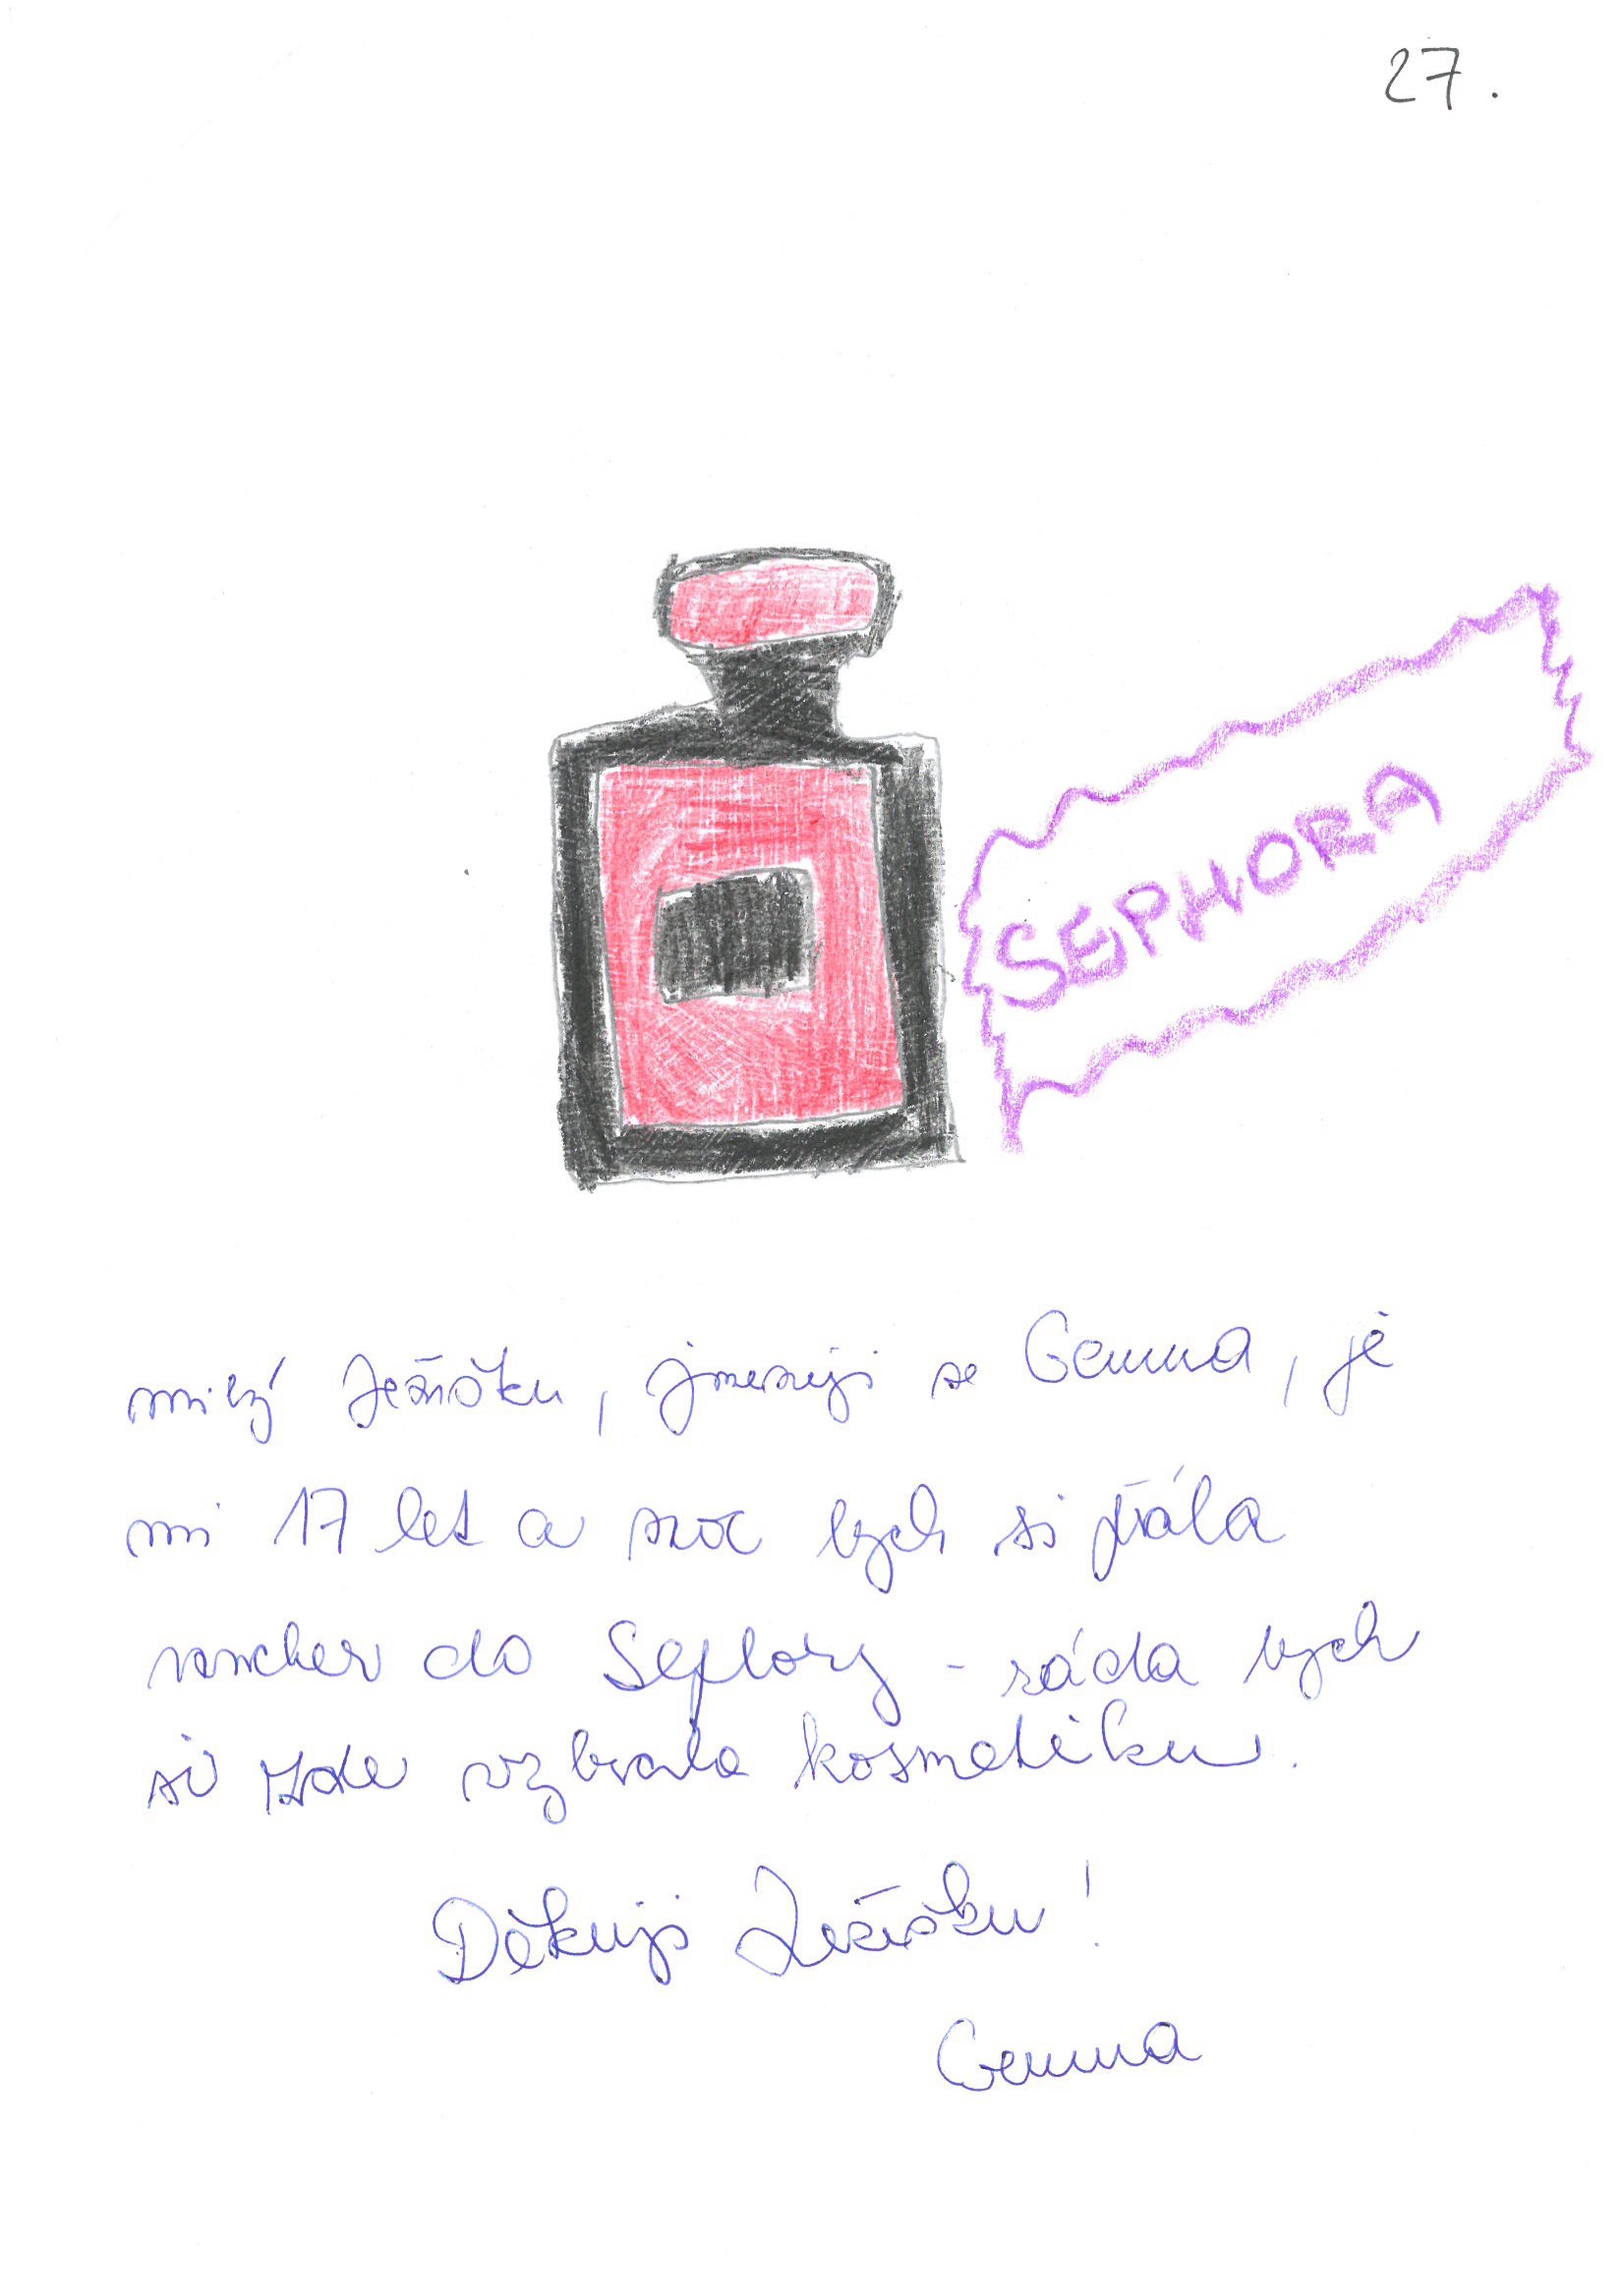 27.
SEPHORA
milý Ježíšku, jmenuji se Gemma, je
mi 17 let a moc bych si přála
voucher do Sephory - ráda bych
si zde vybrala kosmetiku.
Děkuji Ježíšku!
Gemma